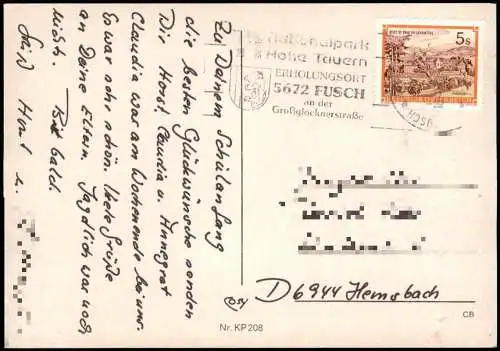 Zu Deinem Schulanfang
die besten Glückwünsche senden
Dir Horst Claudia u. Annegret
Claudia war am Wochenende bei uns.
Es war sehr schön. Viele Grüße
an Deine Eltern. Jagdlich war noch
nichts. Bis bald.
Nationalpark
Hohe Tauern
ERHOLUNGSORT
5672 FUSCH
an der
Großglocknerstraße
5s
D6944 Hemsbach
Nr. KP 208
CB